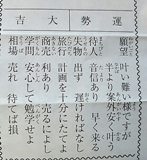 運勢大吉
願望 叶い難い様ですが半より案外安く叶う
待人 音信あり 早く来る
失物 出ず 遅ければなし
旅行 計画を十分にたてよ
商売 利あり 売るによし
学問 安心して勉学せよ
相場 売れ 待てば損